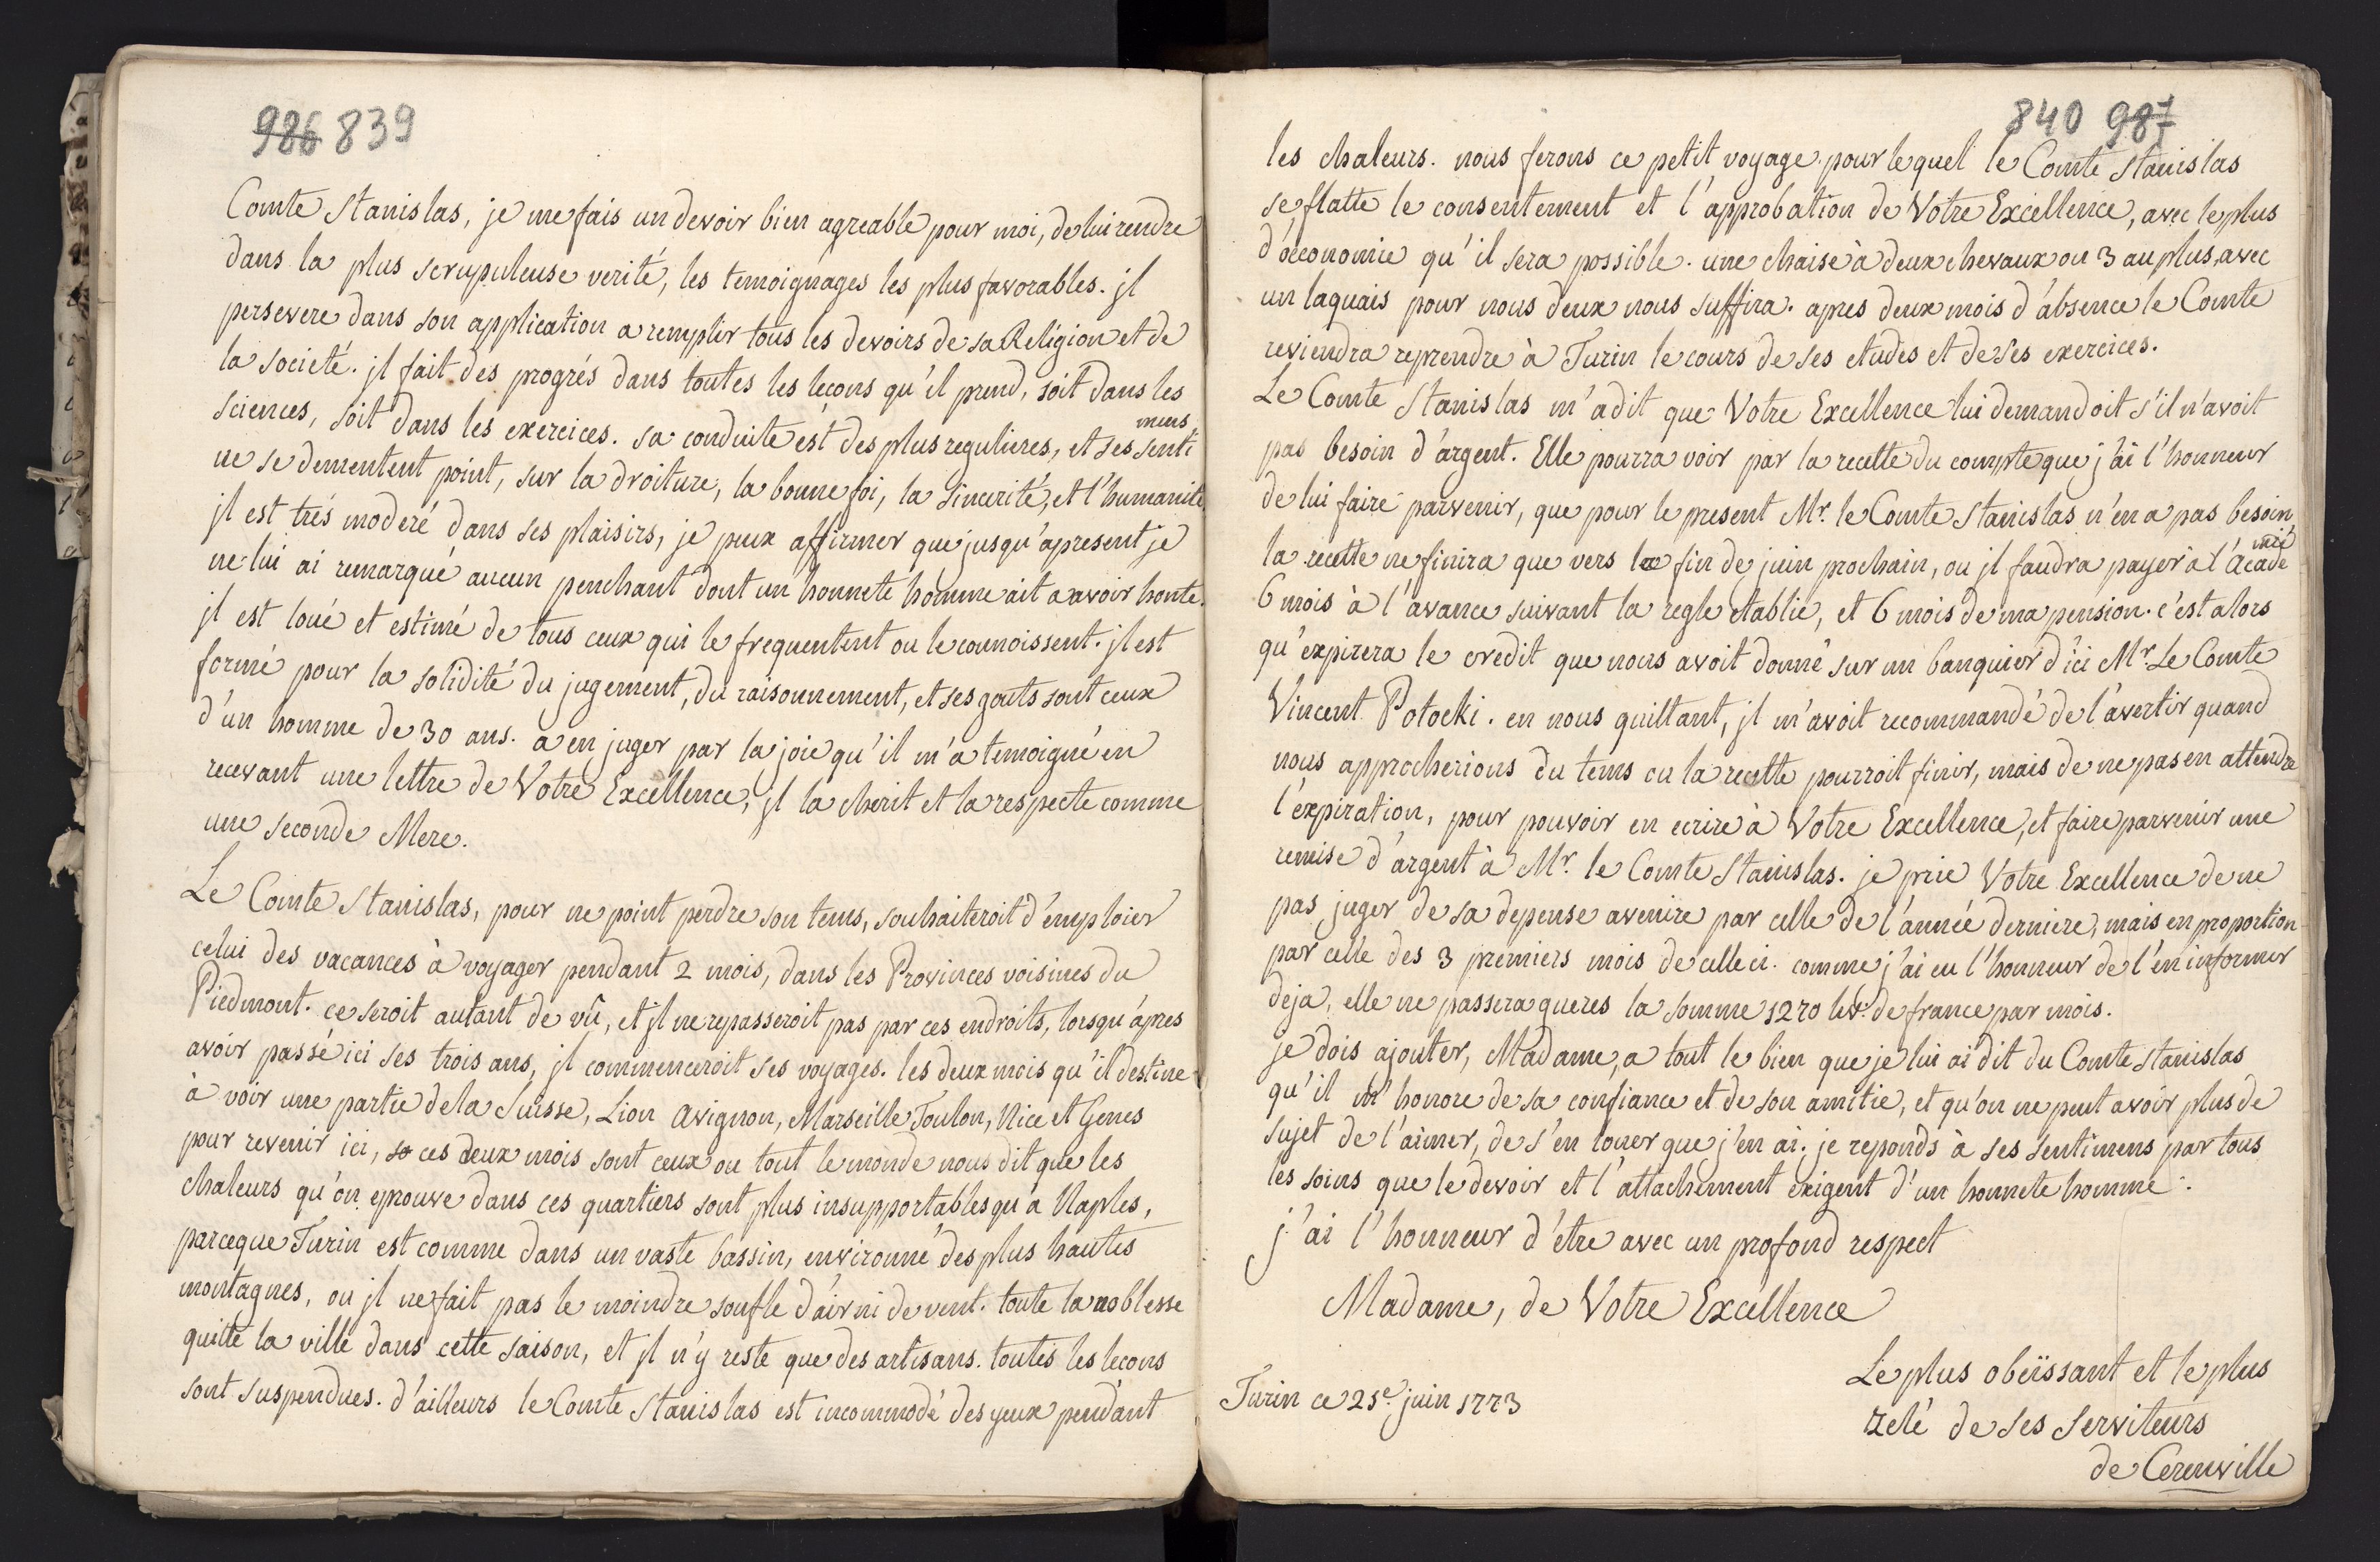 986 839
Comte Stanislas, je me fais un devoir bien agreable pour moi, de lui rendre
dans la plus scrupuleuse verité, les temoignages les plus favorables. jl
persevere dans son application a remplir tous les devoirs de sa Religion et de
la societé. jl fait des progrés dans toutes les lecons qu'il prend, soit dans les
sciences, soit dans les exercices. sa conduite est des plus regulieres, et ses senti
mens,
ne se dementent point, sur la droiture, la bonne foi, la sincerité, et l'humanité.
jl est trés moderé dans ses plaisirs, je peux affirmer que jusqu'apresent je
ne lui ai remarqué aucun penchant dont un honnete homme ait a avoir honte.
jl est loué et estimé de tous ceux qui le frequentent ou le connoissent. jl est
formé pour la solidité du jugement, du raisonnement, et ses gouts sont ceux
d'un homme de 30 ans. a en juger par la joie qu'il m'a temoigné en
recevant une lettre de Votre Excellence, jl la cherit et la respecte comme
une seconde Mere.
Le Comte Stanislas, pour ne point perdre son tems, souhaiteroit d'emploier
celui des vacances à voyager pendant 2 mois, dans les Provinces voisines du
Piedmont. ce seroit autant de vû, et jl ne repasseroit pas par ces endroits, lorsqu'apres
avoir passé ici ses trois ans, jl commenceroit ses voyages. les deux mois qu'il destine
à voir une partie de la Suisse, Lion Avignon, Marseille Toulon, Nice et Genes
pour revenir ici, ces deux mois sont ceux ou tout le monde nous dit que les
chaleurs qu'on eprouve dans ces quartiers sont plus insupportables qu'a Naples,
parceque Turin est comme dans un vaste bassin, environné des plus hautes
montagnes, ou jl ne fait pas le moindre soufle d'air ni de vent. toute la noblesse
quitte la ville dans cette saison, et jl n'y reste que des artisans. toutes les lecons
sont suspendues. d'ailleurs le Comte Stanislas est incommodé des yeux pendant
840 987
les chaleurs. nous ferons ce petit voyage pour lequel le Comte Stanislas
se flatte le consentement et l'approbation de Votre Excellence, avec le plus
d'oeconomie qu'il sera possible. une chaise à deux chevaux ou 3 au plus, avec
un laquais pour nous deux nous suffira. apres deux mois d'absence le Comte
reviendra reprendre à Turin le cours de ses etudes et de ses exercices.
Le Comte Stanislas m'a dit que Votre Excellence lui demandoit s'il n'avoit
pas besoin d'argent. Elle pourra voir par la recette du compte que j'ai l'honneur
de lui faire parvenir, que pour le present Mr. le Comte Stanislas n'en a pas besoin,
la recette ne finira que vers la fin de juin prochain, ou jl faudra payer à l'Acadé
mié
6 mois à l'avance suivant la regle etablie, et 6 mois de ma pension. c'est alors
qu'expirera le credit que nous avoit donné sur un banquier d'ici Mr. Le Comte
Vincent Potocki. en nous quittant, jl m'avoit recommandé de l'avertir quand
nous approcherions du tems ou la recette pourroit finir, mais de ne pas en attendre
l'expiration, pour pouvoir en ecrire à Votre Excellence, et faire parvenir une
remise d'argent à Mr. le Comte Stanislas. je prie Votre Excellence de ne
pas juger de sa depense avenire par celle de l'année derniere, mais en proportion
par celle des 3 premiers mois de celle ci. comme j'ai eu l'honneur de l'en informer
deja, elle ne passera gueres la somme 1270 de france par mois.
je dois ajouter, Madame, a tout le bien que je lui ai dit du Comte Stanislas
qu'il m'honore de sa confiance et de son amitie, et qu'on ne peut avoir plus de
sujet de l'aimer, de s'en louer que j'en ai. je reponds à ses sentimens par tous
les soins que le devoir et l'attachement exigent d'un honnete homme.
j'ai l'honneur d'etre avec un profond respect
Madame, de Votre Excellence
Le plus obeïssant et le plus
Turin ce 25e. juin 1773
zelé de ses serviteurs
de Cerenville